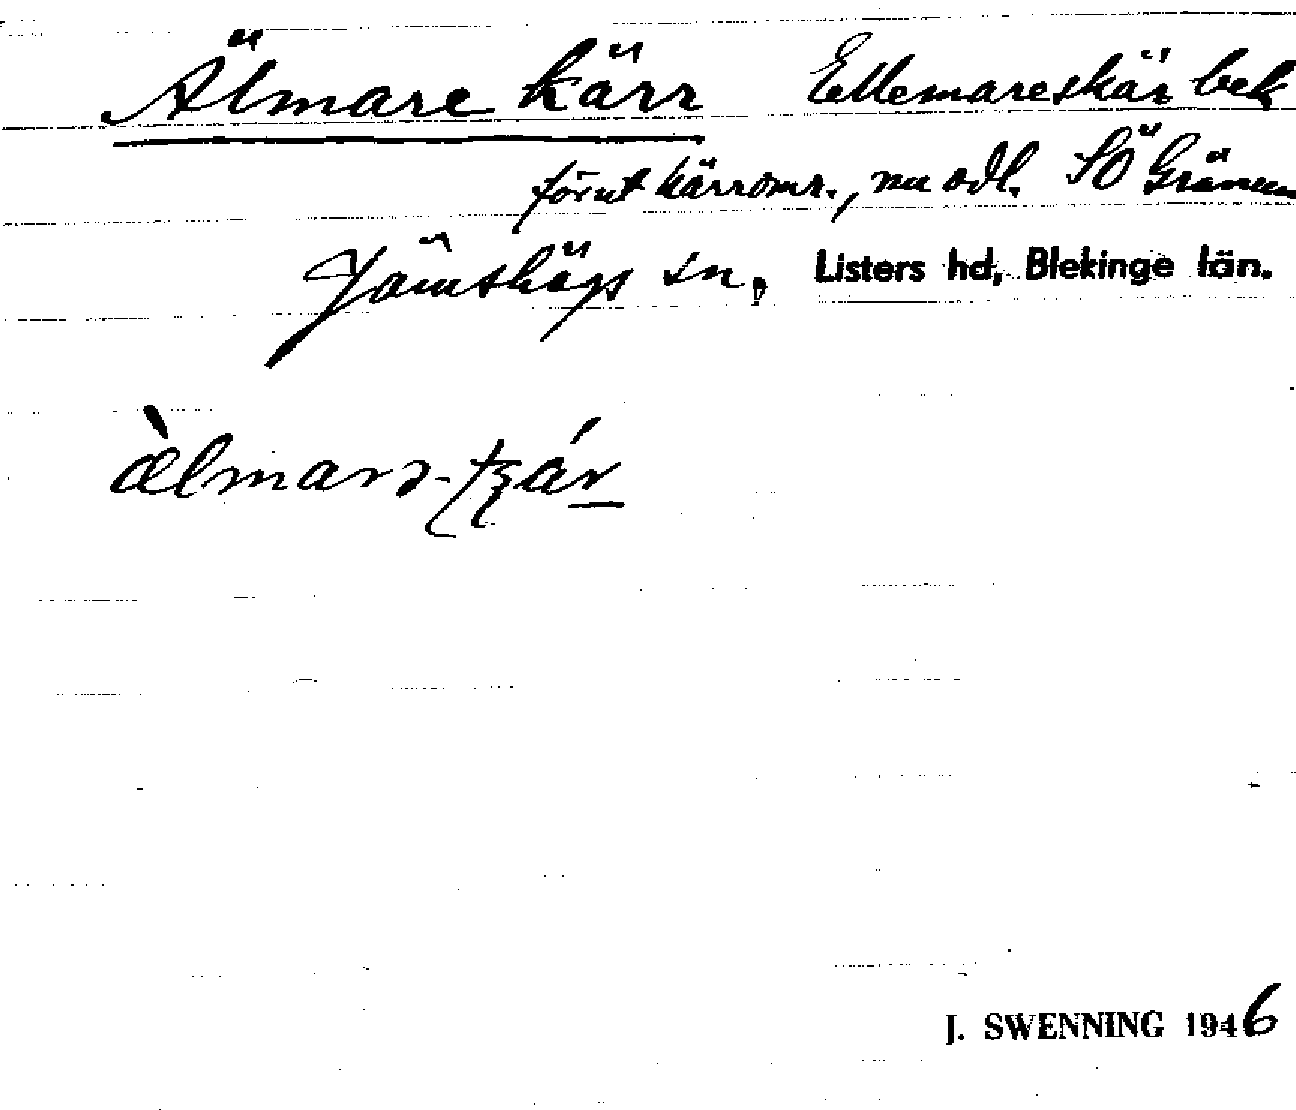 Älmare kärr Ellemareskär bek
förut kärromr., nu odl. SÖ
Jämshögs sn, Listers hd, Blekinge län.
J. SWENNING 1946